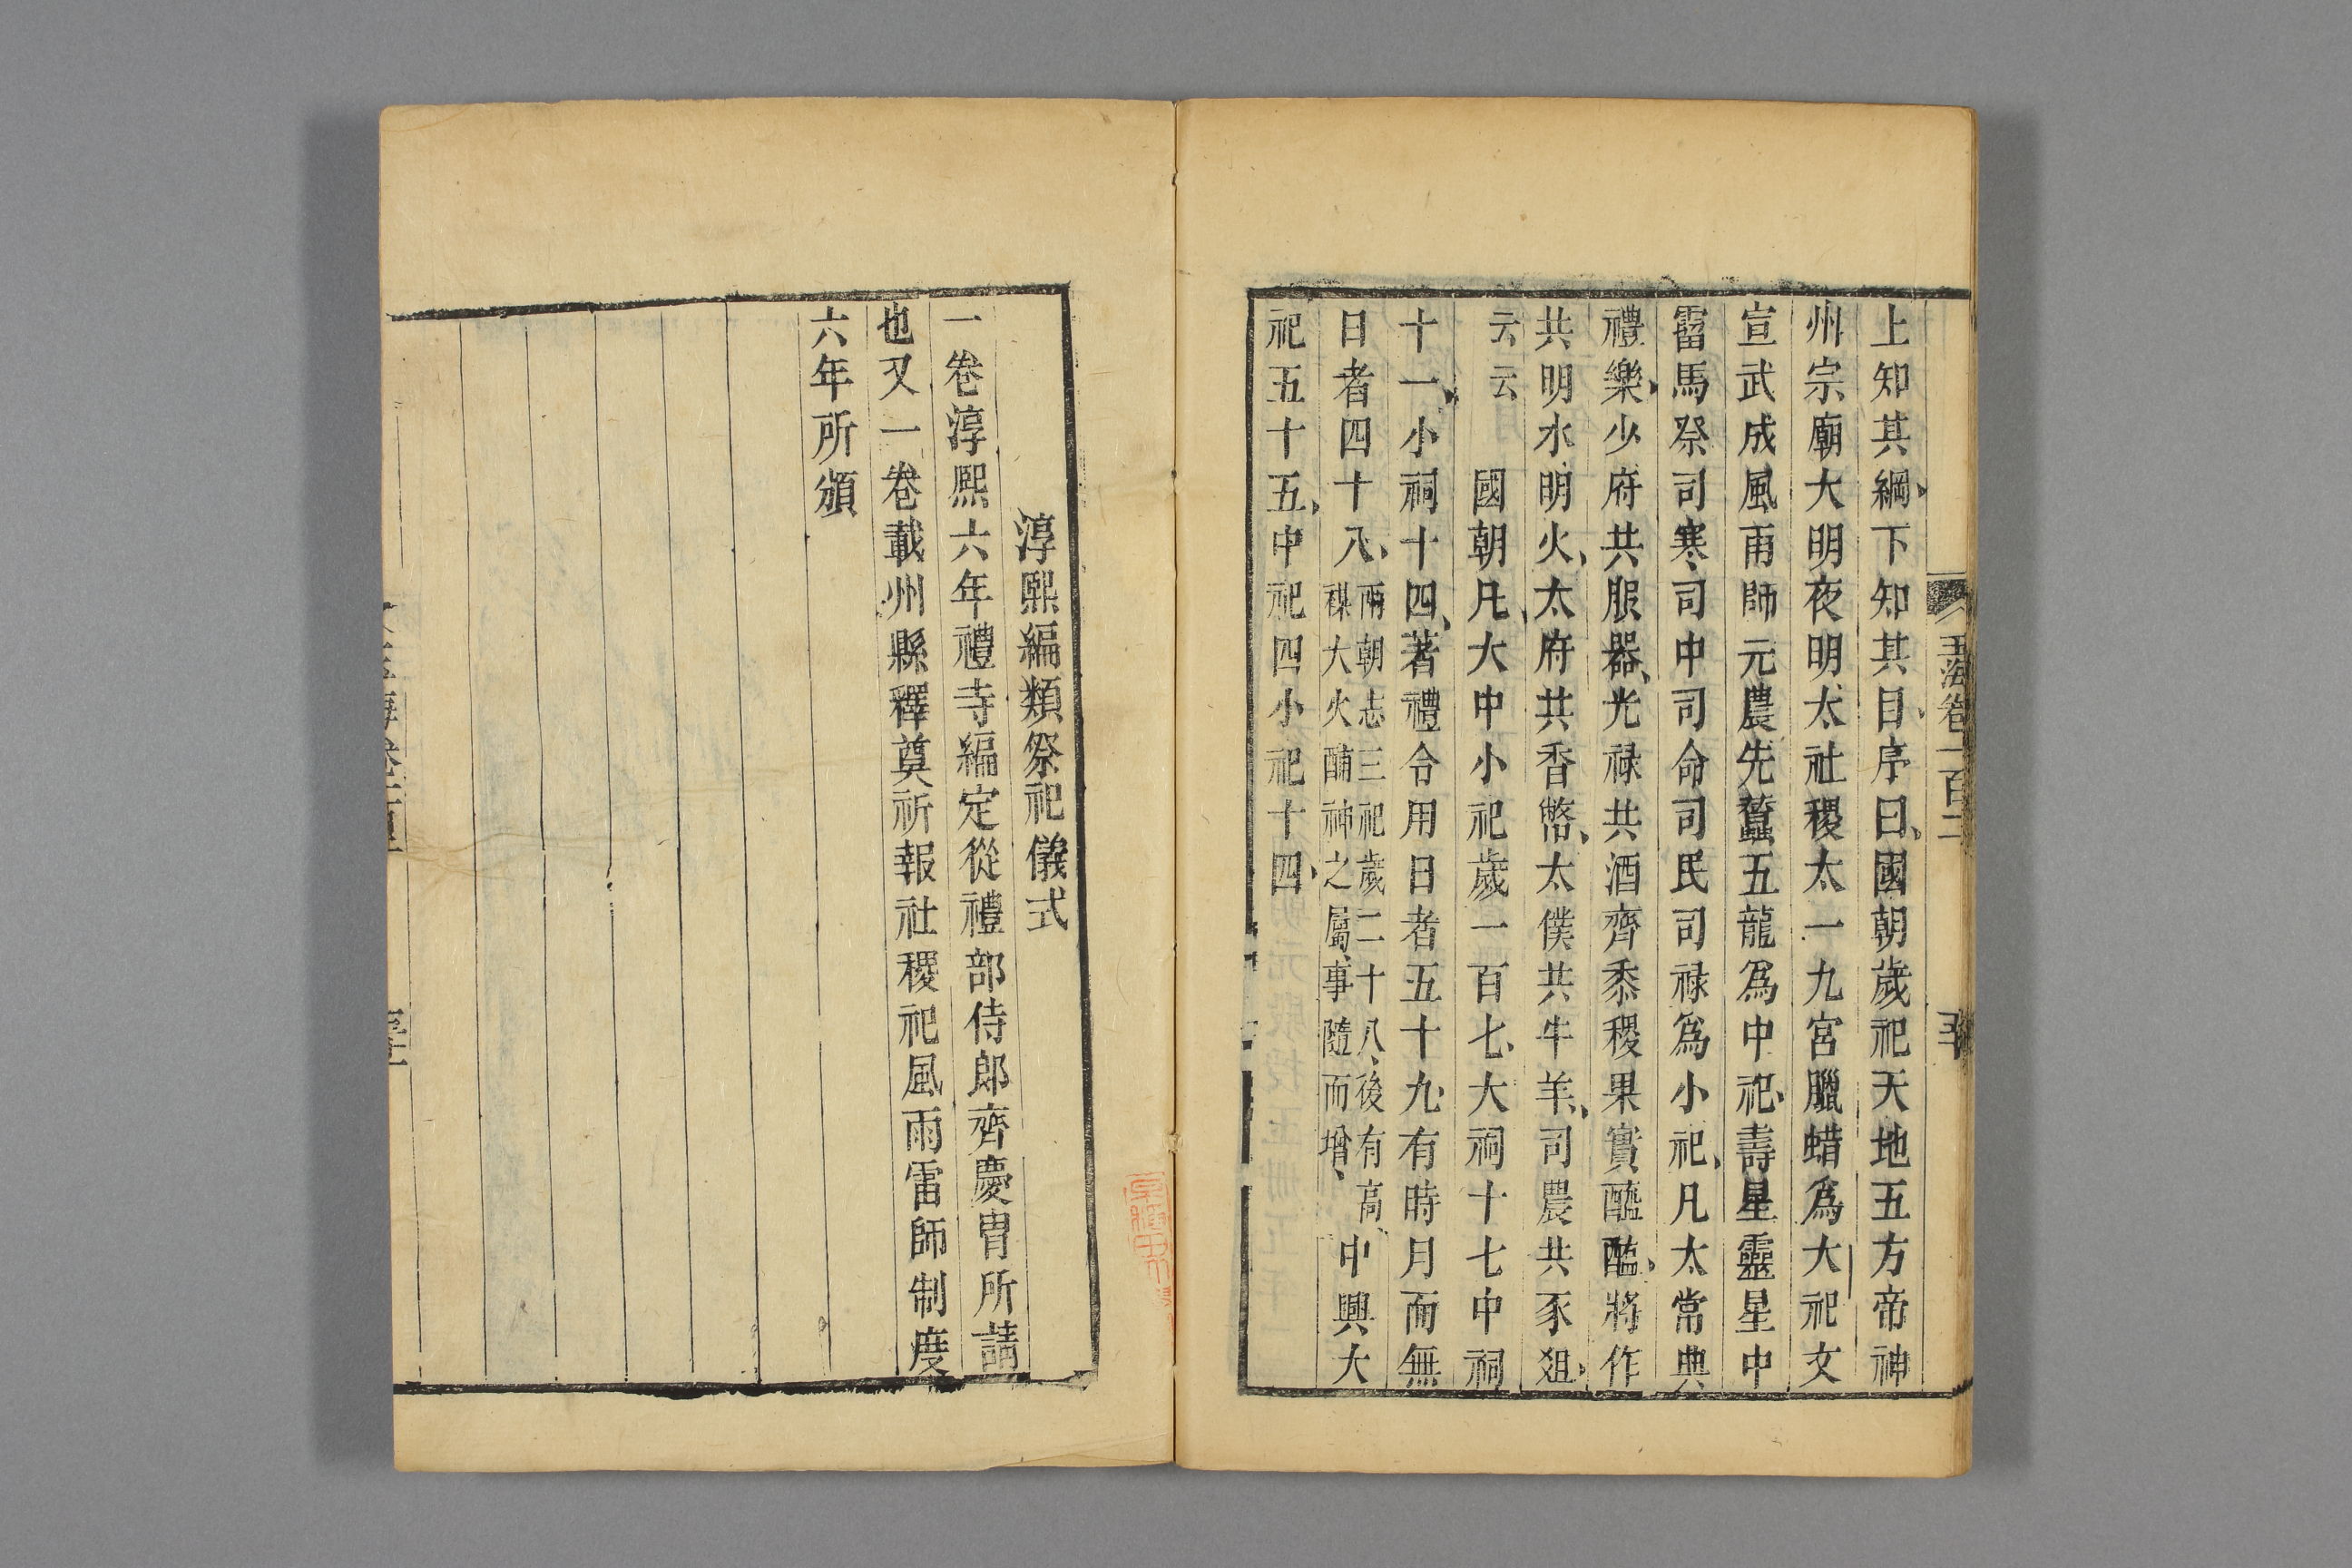 玉海卷一百二
上知其綱下知其目序曰國朝歲祀天地五方帝神
州宗廟大明夜明太社稷太一九宮臘蜡爲大祀文
宣武成風雨師元農先蠶五龍爲中祀壽星靈星中
霤馬祭司寒司中司命司民司祿爲小祀凡太常典
禮樂少府共服器光祿共酒齊黍稷果實醯醢將作
共明水明火太府共香幣太僕共牛羊司農共豕俎
云云 國朝凡大中小祀歲一百七大祠十七中祠
十一小祠十四著禮令用日者五十九有時月而無
日者四十八兩朝志三祀歲二十八後有高禖大火酺神之屬事隨而增 中興大
祀五十五中祀四小祀十四
淳熙編類祭祀儀式
一卷淳熙六年禮寺編定從禮部侍郎齊慶胄所請
也又一卷載州縣釋奠祈報社稷祀風雨雷師制度
六年所頒